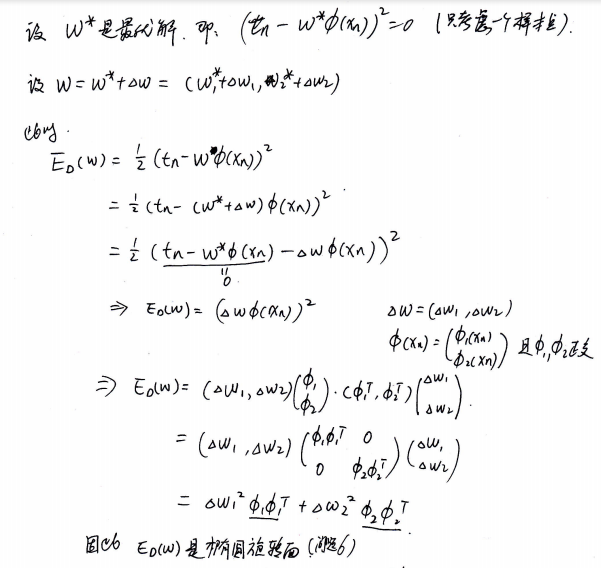 设 W* 是最优解. 即: (tn - W*ϕ(xn))² = 0 (只考虑一个样本).
设 W = W* + ΔW = (W1* + ΔW1, W2* + ΔW2)
此时.
ED(W) = 1/2 (tn - Wϕ(xn))²
= 1/2 (tn - (W* + ΔW) ϕ(xn))²
= 1/2 (tn - W*ϕ(xn) - ΔWϕ(xn))²
= 0
⇒ ED(W) = (ΔWϕ(xn))² ΔW = (ΔW1, ΔW2)
ϕ(xn) = (ϕ1(xn) ϕ2(xn)) 且ϕ1, ϕ2正交
⇒ ED(W) = (ΔW1, ΔW2) (ϕ1 ϕ2) · (ϕ1ᵀ, ϕ2ᵀ) (ΔW1 ΔW2).
= (ΔW1, ΔW2) (ϕ1ϕ1ᵀ 0 0 ϕ2ϕ2ᵀ) (ΔW1 ΔW2)
= ΔW1² ϕ1ϕ1ᵀ + ΔW2² ϕ2ϕ2ᵀ
因此 ED(W) 是椭圆旋转面 (问题6)